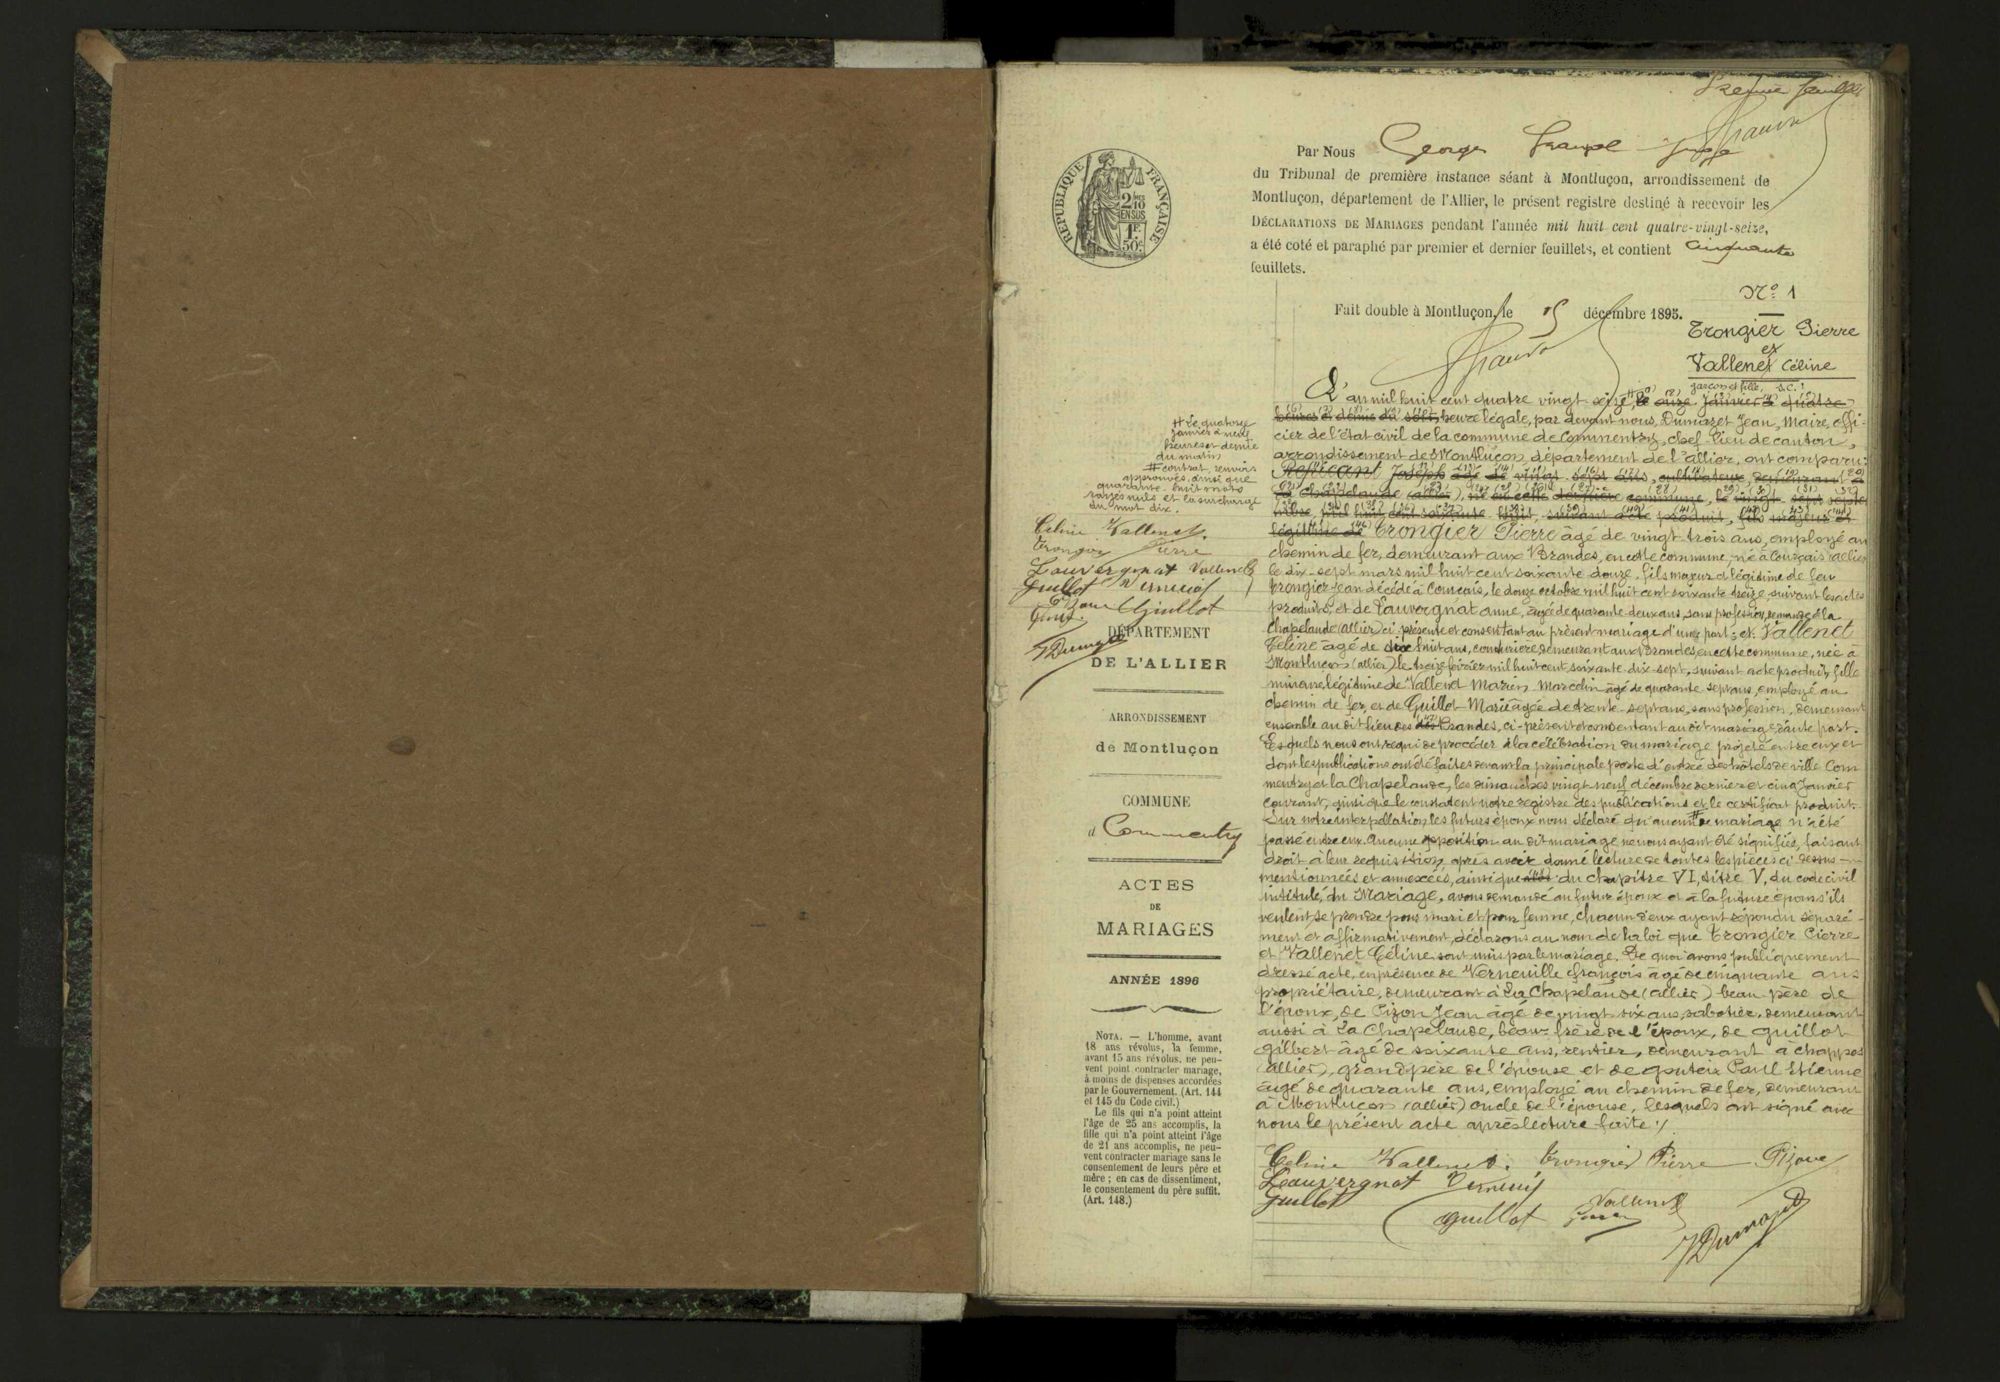 Premier feuillet
Par Nous Georges juge
du Tribunal de première instance séant à Montluçon, arrondissement de
Montluçon, département de l'Allier, le présent registre destiné à recevoir les
DÉCLARATIONS DE MARIAGES pendant l'année mil huit cent quatre-vingt-seize,
a été coté et paraphé par premier et dernier feuillets, et contient cinquante
feuillets.
Fait double à Montluçon, le 15 décembre 1895.
RÉPUBLIQUE FRANÇAISE
2/10
EN SUS
1F
50c
No 1
Trongier Pierre
et
Vallenet Céline
garçon et fille, s.c.
L'an mil huit cent quatre vingt seize, # le onze Janvier à quatre
heures et demie du soir, heure légale, par devant nous, Dumazet Jean, Maire, offi-
cier de l'état civil de la commune de Commentry, chef-lieu de canton,
arrondissement de Montluçon, département de l'allier, ont comparu:
Joseph âgé de vingt sept ans, cultivateur, demeurant à
la Chapelaude (allier), né en cette dernière commune, le vingt sept septem-
bre, mil huit cent soixante huit, suivant acte produit, fils majeur et
légitime de Trongier Pierre âgé de vingt trois ans, employé au
chemin de fer, demeurant aux Brandes, en cette commune, né à Courçais (allier)
le dix-sept mars mil huit cent soixante douze, fils majeur et légitime de feu
Trongier Jean décédé à Courçais, le douze octobre mil huit cent soixante treize, suivant les actes
produits, et de Lauvergnat anne, âgée de quarante deux ans, sans profession, demeurant à la
Chapelaude (allier) ci-présente et consentant au présent mariage d'une part; et Vallenet
Céline âgé de dix huit ans, couturière demeurant aux Brandes, en cette commune, née à
Montluçon (allier) le treize février mil huit cent soixante dix-sept, suivant acte produit, fille
mineure légitime de Vallenet Marien Marcelin âgé de quarante sept ans, employé au
chemin de fer, et de Guillot Marie âgée de trente-sept ans, sans profession, demeurant
ensemble au dit lieu des des Brandes, ci-présent et consentant au dit mariage d'autre part.
Lesquels nous ont requi de procéder à la célébration du mariage projeté entre eux et
dont les publications ont été faites devant la principale porte d'entrée des hôtels de ville Com
mentry et la Chapelaude, les dimanches vingt neuf décembre dernier et cinq Janvier
courant, ainsi que le constatent notre registre des publications et le certificat produit.
Sur notre interpellation, les futurs époux nous déclaré qu'aucun # de mariage n'a été
passé entre eux. Aucune opposition au dit mariage ne nous ayant été signifiée, faisant
droit à leur requisition, après avoir donné lecture de toutes les pièces ci-dessus
mentionnées et annexées, ainsi que du chapitre VI, titre V, du code civil
intitulé, du Mariage, avons demandé au futur époux et à la future épouse s'ils
veulent se prendre pour mari et pour femme, chacun d'eux ayant répondu séparé-
ment et affirmativement, déclarons au nom de la loi que Trongier Pierre
et Vallenet Céline sont unis par le mariage. De quoi avons publiquement
dressé acte, en présence de Verneuille françois âgé de cinquante ans
propriétaire, demeurant à La Chapelaude (allier) beau-père de
l'époux, de Pizon Jean âgé de vingt six ans, sabotier, demeurant
aussi à La Chapelaude, beau-frère de l'époux, de Guillot
Gilbert âgé de soixante ans, rentier, demeurant à Chappes
(allier), grand père de l'épouse et de Paul Etienne
âgé de quarante ans, employé au chemin de fer, demeurant
à Montluçon (allier) oncle de l'épouse, lesquels ont signé avec
nous le présent acte après lecture faite ./.
Céline Vallenet. Trongier Pierre Pizon
Lauvergnat Verneuil
Guillot Vallenet
Guillot
JDumazet
# Le quatorze
janvier à neuf
heures et demie
du matin
# contrat, renvois
approuvés, ainsi que
quarante-huit mots
rayés nuls et la surcharge
du mot dix.
Céline Vallenet.
Trongier Pierre
Lauvergnat Vallenet
Guillot Verneuil
Guillot
JDumazet
DÉPARTEMENT
DE L'ALLIER
ARRONDISSEMENT
de Montluçon
COMMUNE
d Commentry
ACTES
DE
MARIAGES
ANNÉE 1896
NOTA. — L'homme, avant
18 ans révolus, la femme,
avant 15 ans révolus, ne peu-
vent point contracter mariage,
à moins de dispenses accordées
par le Gouvernement. (Art. 144
et 145 du Code civil.)
Le fils qui n'a point atteint
l'âge de 25 ans accomplis, la
fille qui n'a point atteint l'âge
de 21 ans accomplis, ne peu-
vent contracter mariage sans le
consentement de leurs père et
mère; en cas de dissentiment,
le consentement du père suffit.
(Art. 148.)